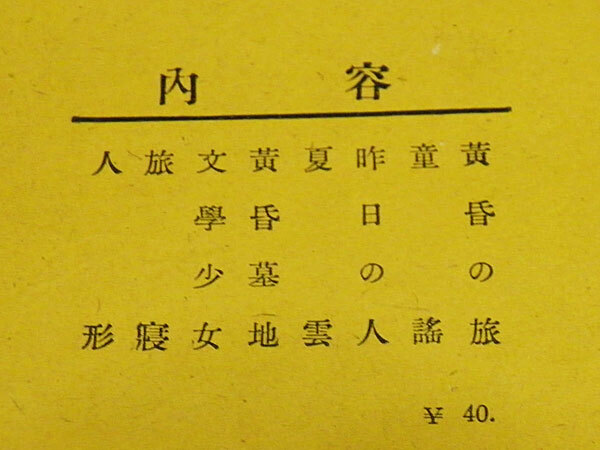 內容
黃昏の旅
童謠
昨日の人
夏雲
黃昏墓地
文學少女
旅寢
人形
¥ 40.